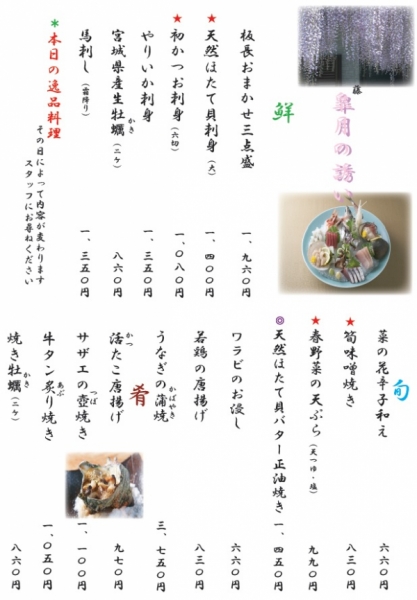 藤
皐月の誘い
鮮
板長おまかせ三点盛 一、九六〇円
★天然ほたて貝刺身(大) 一、四〇〇円
★初かつお刺身(六切) 一、〇八〇円
やりいか刺身 一、三五〇円
宮城県産生牡蠣(二ケ) 八六〇円
かき
馬刺し(霜降り) 一、三五〇円
*本日の逸品料理
その日によって内容が変わります
スタッフにお尋ねください
旬
菜の花辛子和え 六六〇円
★筍味噌焼き 八三〇円
★春野菜の天ぷら(天つゆ・塩) 九九〇円
◎天然ほたて貝バター正油焼き 一、四五〇円
ワラビのお浸し 六六〇円
肴
若鶏の唐揚げ 八三〇円
うなぎの蒲焼 三、七五〇円
かばやき
活たこ唐揚げ 九七〇円
かつ
サザエの壺焼き 一、一〇〇円
つぼ
牛タン炙り焼き 一、〇五〇円
あぶ
焼き牡蠣(二ケ) 八六〇円
かき